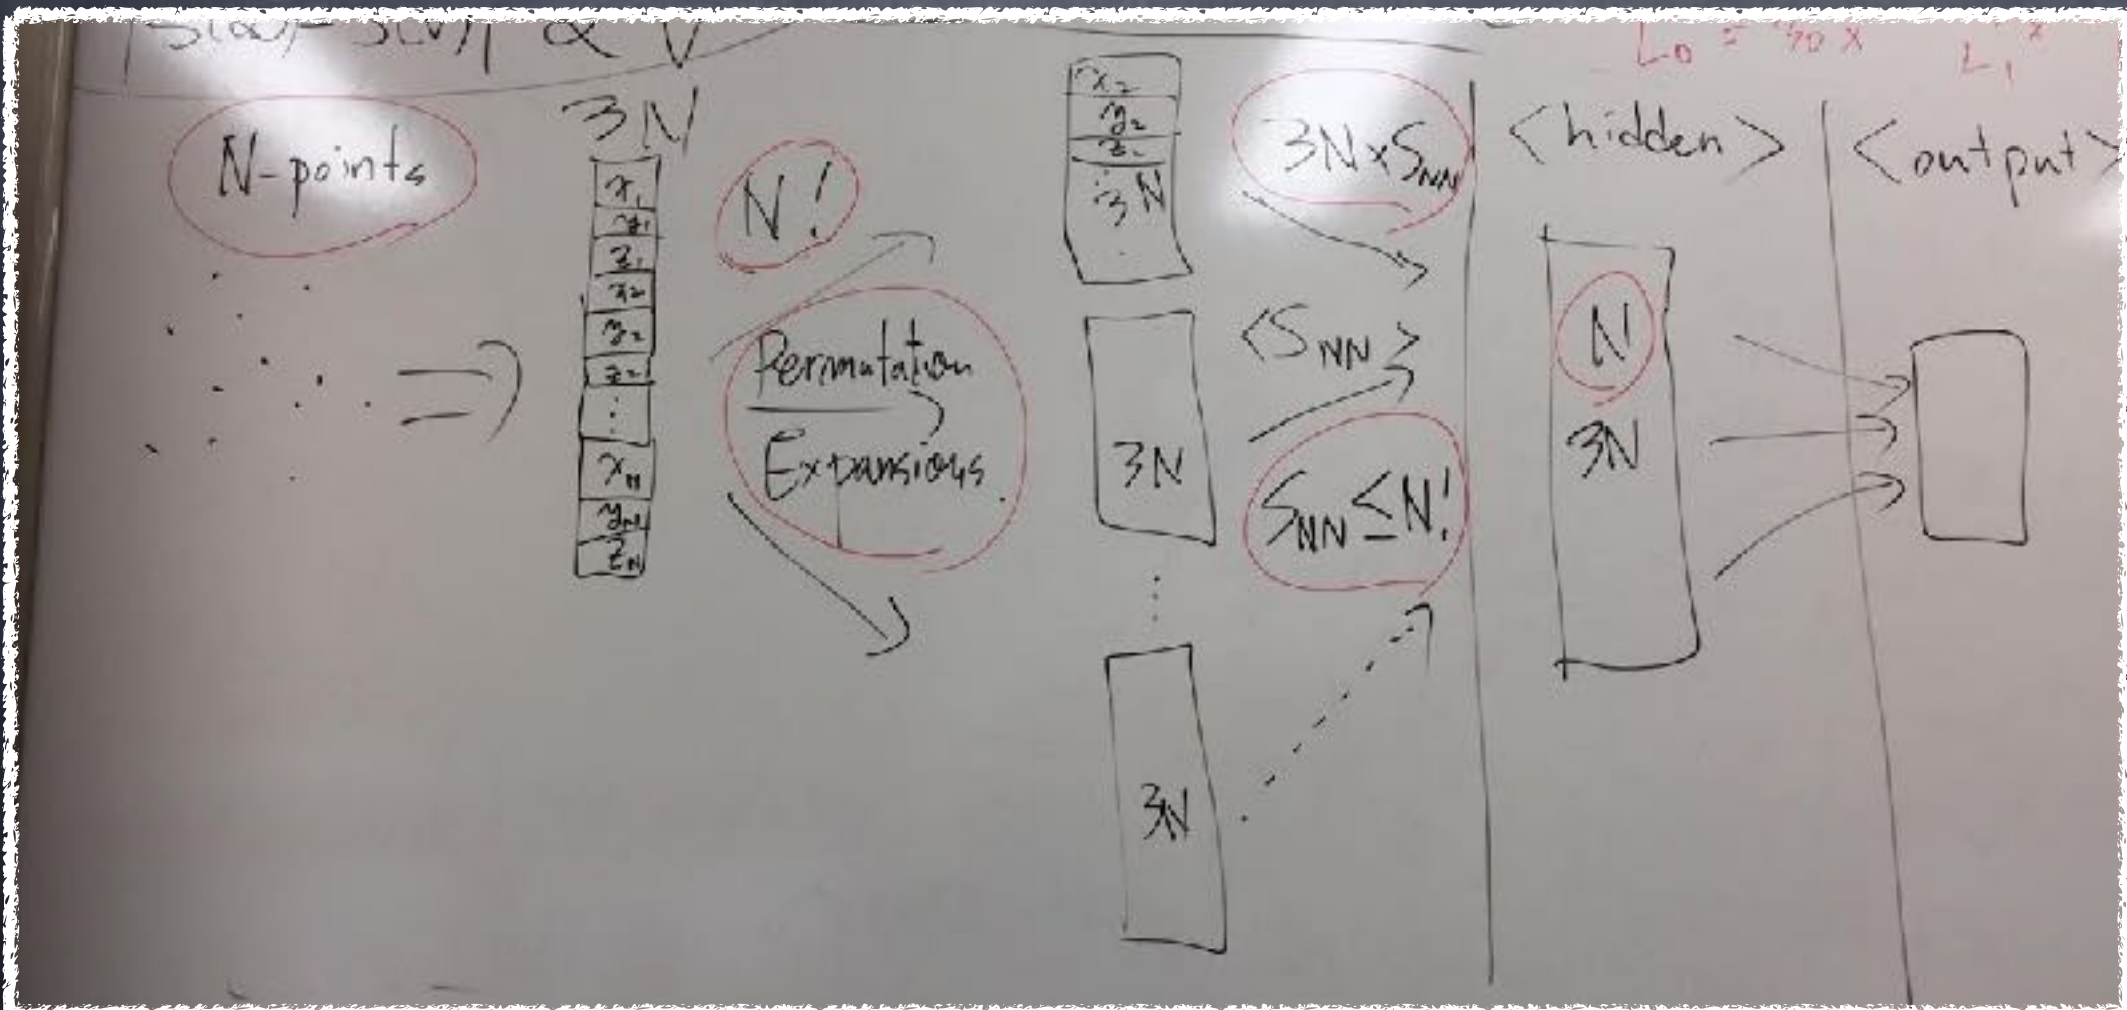 N-points
3N
x₁
y₁
z₁
x₂
y₂
z₂
⋮
x_N
y_N
z_N
N!
Permutation
Expansions
x₂
y₂
z₂
3N
3N
⋮
3N
3N×S_NN
<S_NN>
S_NN ≤ N!
<hidden>
N!
3N
<output>